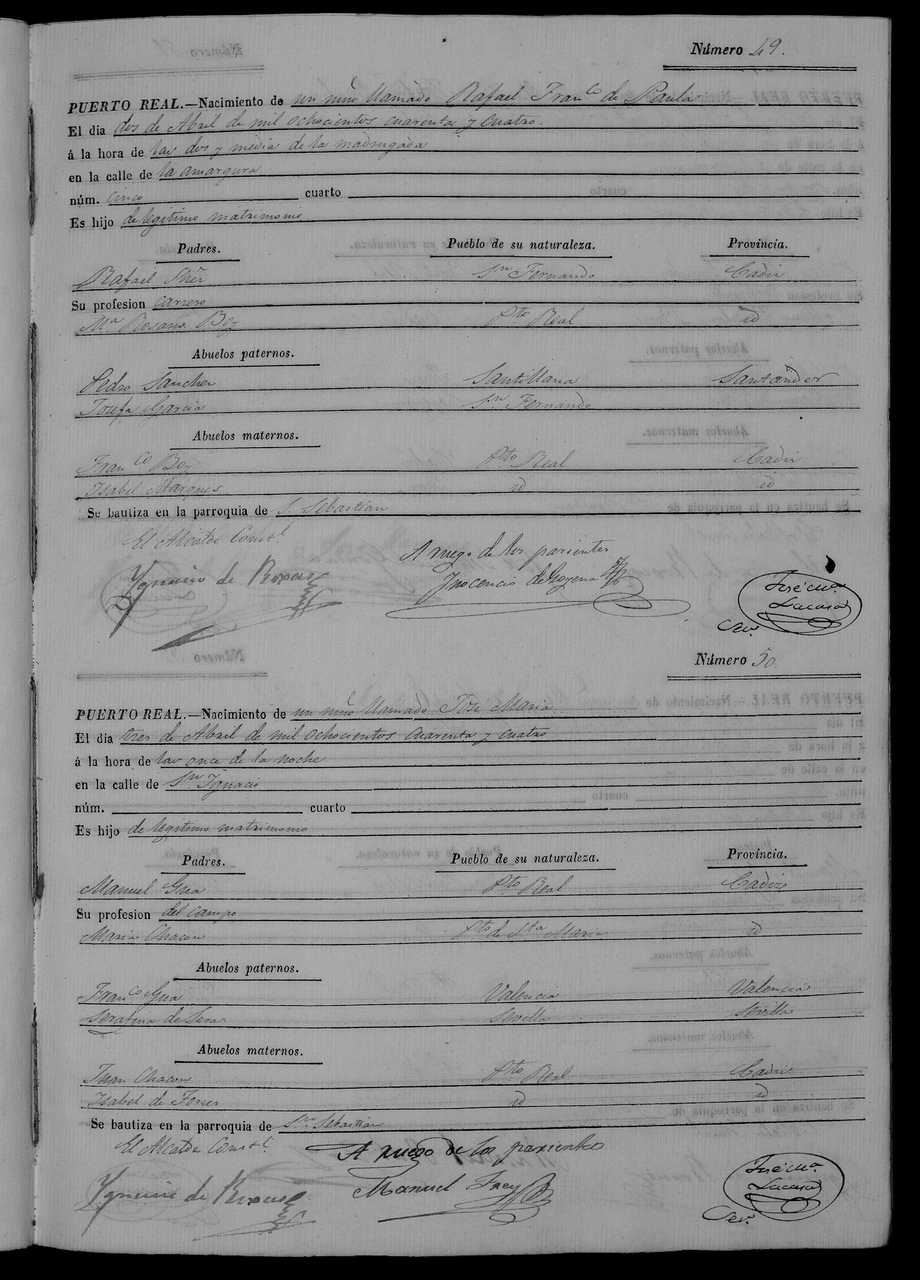 Número 49.
PUERTO REAL.—Nacimiento de un niño llamado Rafael Franco de Paula
El dia dos de Abril de mil ochocientos cuarenta y cuatro.
á la hora de las dos y media de la madrugada
en la calle de la amargura
núm. cinco cuarto
Es hijo de legitimo matrimonio
Padres. Pueblo de su naturaleza. Provincia.
Rafael Sn Fernando Cadiz
Su profesion carrero
Ma Rosario Pto Real id
Abuelos paternos.
Pedro Sanchez Santillana Santander
Josefa Garcia Sn Fernando
Abuelos maternos.
Franco Pto Real Cadiz
Isabel Marques id id
Se bautiza en la parroquia de S. Sebastian
El Alcalde Constl.
A ruego de los parientes
Ygnacio de
Inocencio de Goyena
José Ma.
Lacasa
Número 50
PUERTO REAL.—Nacimiento de un niño llamado Jose Maria
El dia tres de Abril de mil ochocientos cuarenta y cuatro
á la hora de las once de la noche
en la calle de Sn Ignacio
núm. cuarto
Es hijo de legitimo matrimonio
Padres. Pueblo de su naturaleza. Provincia.
Manuel Pto Real Cadiz
Su profesion del campo
Maria Chacon Pto de Sta Maria id
Abuelos paternos.
Franco Valencia Valencia
Serafina de Sevilla Sevilla
Abuelos maternos.
Juan Chacon Pto Real Cadiz
Isabel de id id
Se bautiza en la parroquia de Sn Sebastian
El Alcalde Constl.
A ruego de los parientes
Ygnacio de
Manuel
José Ma.
Lacasa